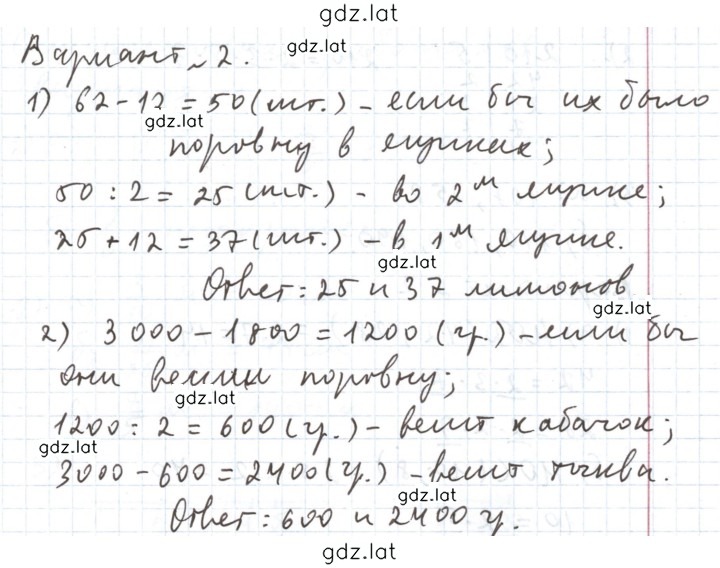 gdz.lat
Вариант 2.
gdz.lat
1) 62 - 12 = 50 (шт.) - если бы их было
gdz.lat
поровну в ящиках;
50 : 2 = 25 (шт.) - во 2м ящике;
25 + 12 = 37 (шт.) - в 1м ящике.
gdz.lat
Ответ: 25 и 37 лимонов
gdz.lat
2) 3 000 - 1 800 = 1200 (г.) - если бы
они весили поровну;
gdz.lat
1200 : 2 = 600 (г.) - весит кабачок;
gdz.lat
3000 - 600 = 2400 (г.) - весит тыква.
gdz.lat
Ответ: 600 и 2400 г.
gdz.lat